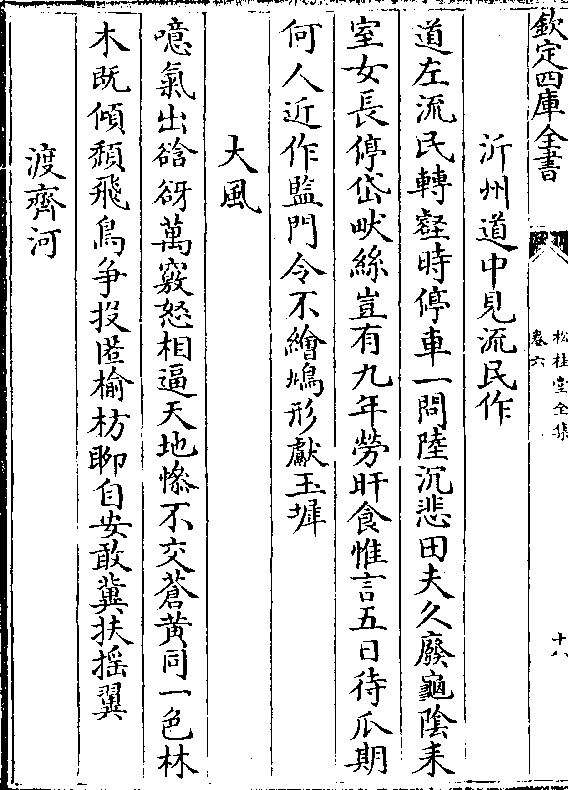 欽定四庫全書
松桂堂全集
卷六
十八
沂州道中見流民作
道左流民轉壑時停車一問陸沉悲田夫久廢龜陰耒
室女長停岱畎絲豈有九年勞旰食惟言五日待瓜期
何人近作監門令不繪鳩形獻玉墀
大風
噫氣出谽谺萬竅怒相逼天地慘不交蒼黃同一色林
木既傾頹飛鳥爭投匿榆枋聊自安敢冀扶摇翼
渡齊河